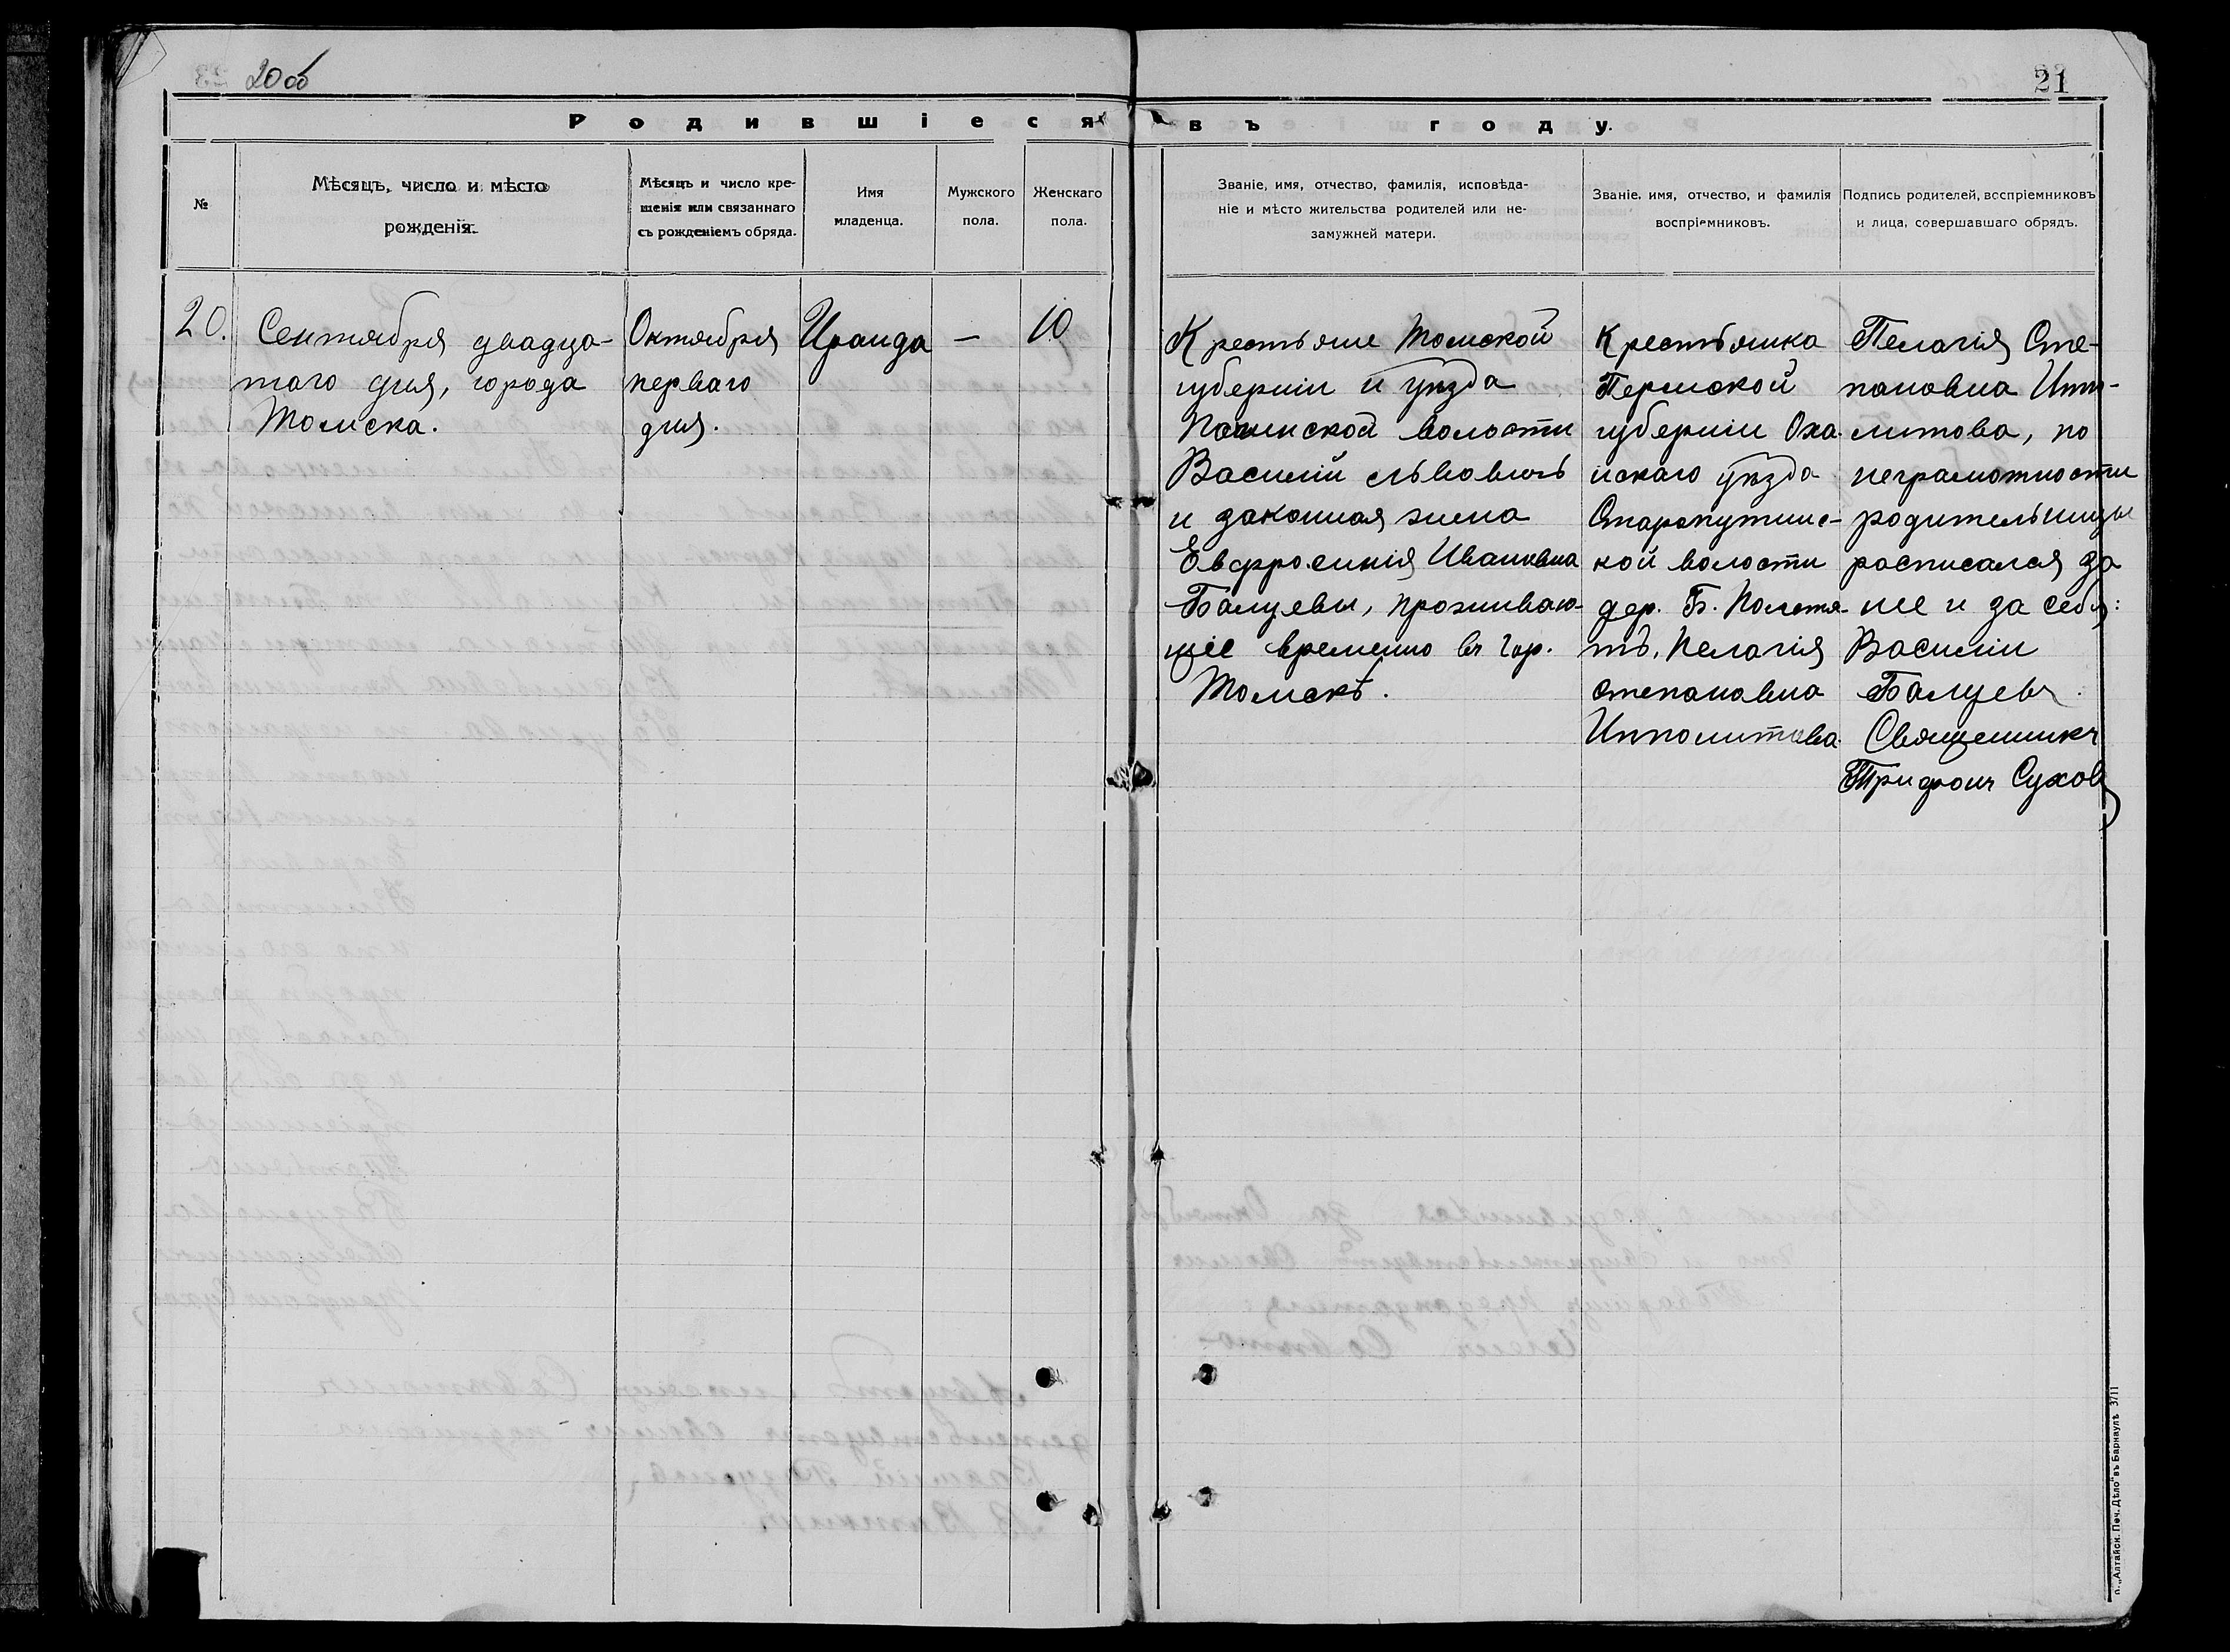 20 об
21
Родившіеся въ году.
№
Мѣсяцъ, число и мѣсто
рожденія.
Мѣсяцъ и число кре-
щенія или связаннаго
съ рожденіемъ обряда.
Имя
младенца.
Мужского
пола.
Женскаго
пола.
Званіе, имя, отчество, фамилія, исповѣда-
ніе и мѣсто жительства родителей или не-
замужней матери.
Званіе, имя, отчество, и фамилія
воспріемниковъ.
Подпись родителей, воспріемниковъ
и лица, совершавшаго обрядъ.
20.
Сентября двадца-
таго дня, города
Томска.
Октября
перваго
дня.
Ираида
—
10
Крестьяне Томской
губерніи и уѣзда
волости
Василій Львовичъ
и законная жена
Евфросинія Ивановна
Балуевы, проживаю-
щіе временно въ гор.
Томскѣ.
Крестьянка
Пермской
губерніи Оха-
нскаго уѣзда
Старопутинс-
кой волости
дер. Б.
Пелагія
Степановна
Ипполитова
Пелагія Сте-
пановна Иппо-
литова, по
неграмотности
родительницы
расписался за
нее и за себя:
Василій
Балуевъ
Священникъ
Трифонъ Сухов
п. „Алтайск. Печ. Дѣло" въ Барнаулѣ 3711